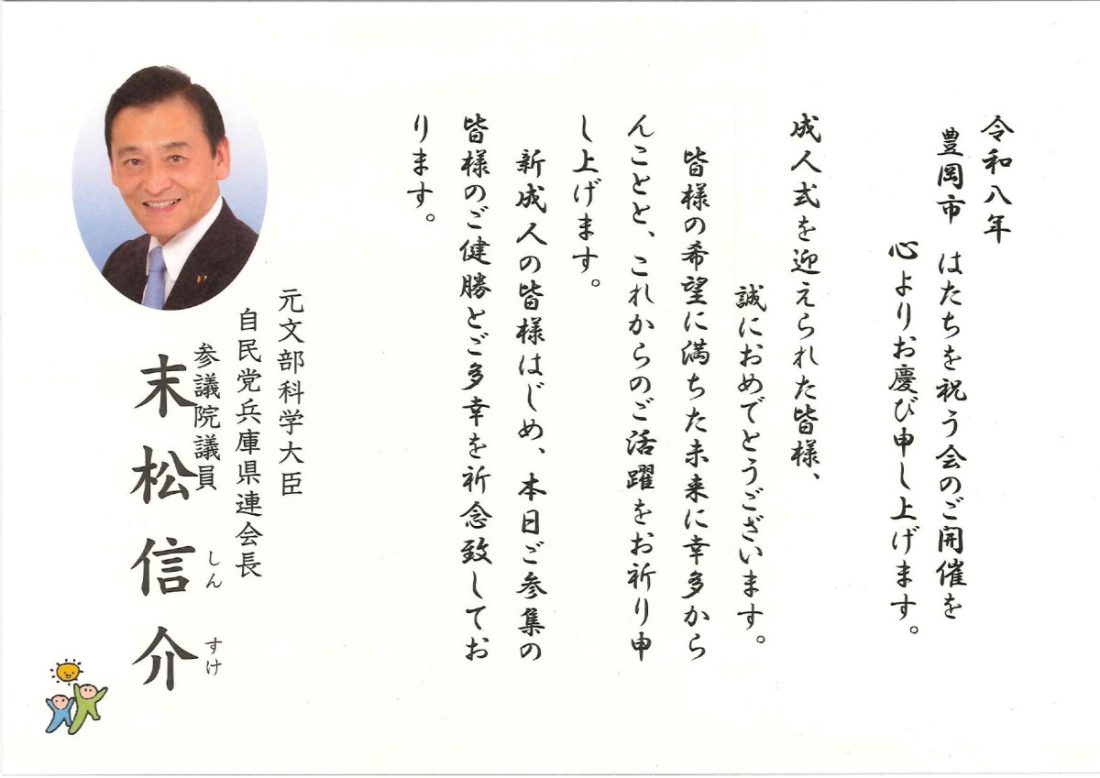 令和八年
豊岡市 はたちを祝う会のご開催を
心よりお慶び申し上げます。
成人式を迎えられた皆様、
誠におめでとうございます。
皆様の希望に満ちた未来に幸多から
んことと、これからのご活躍をお祈り申
し上げます。
新成人の皆様はじめ、本日ご参集の
皆様のご健勝とご多幸を祈念致してお
ります。
元文部科学大臣
自民党兵庫県連会長
参議院議員
末松信介
しん
すけ